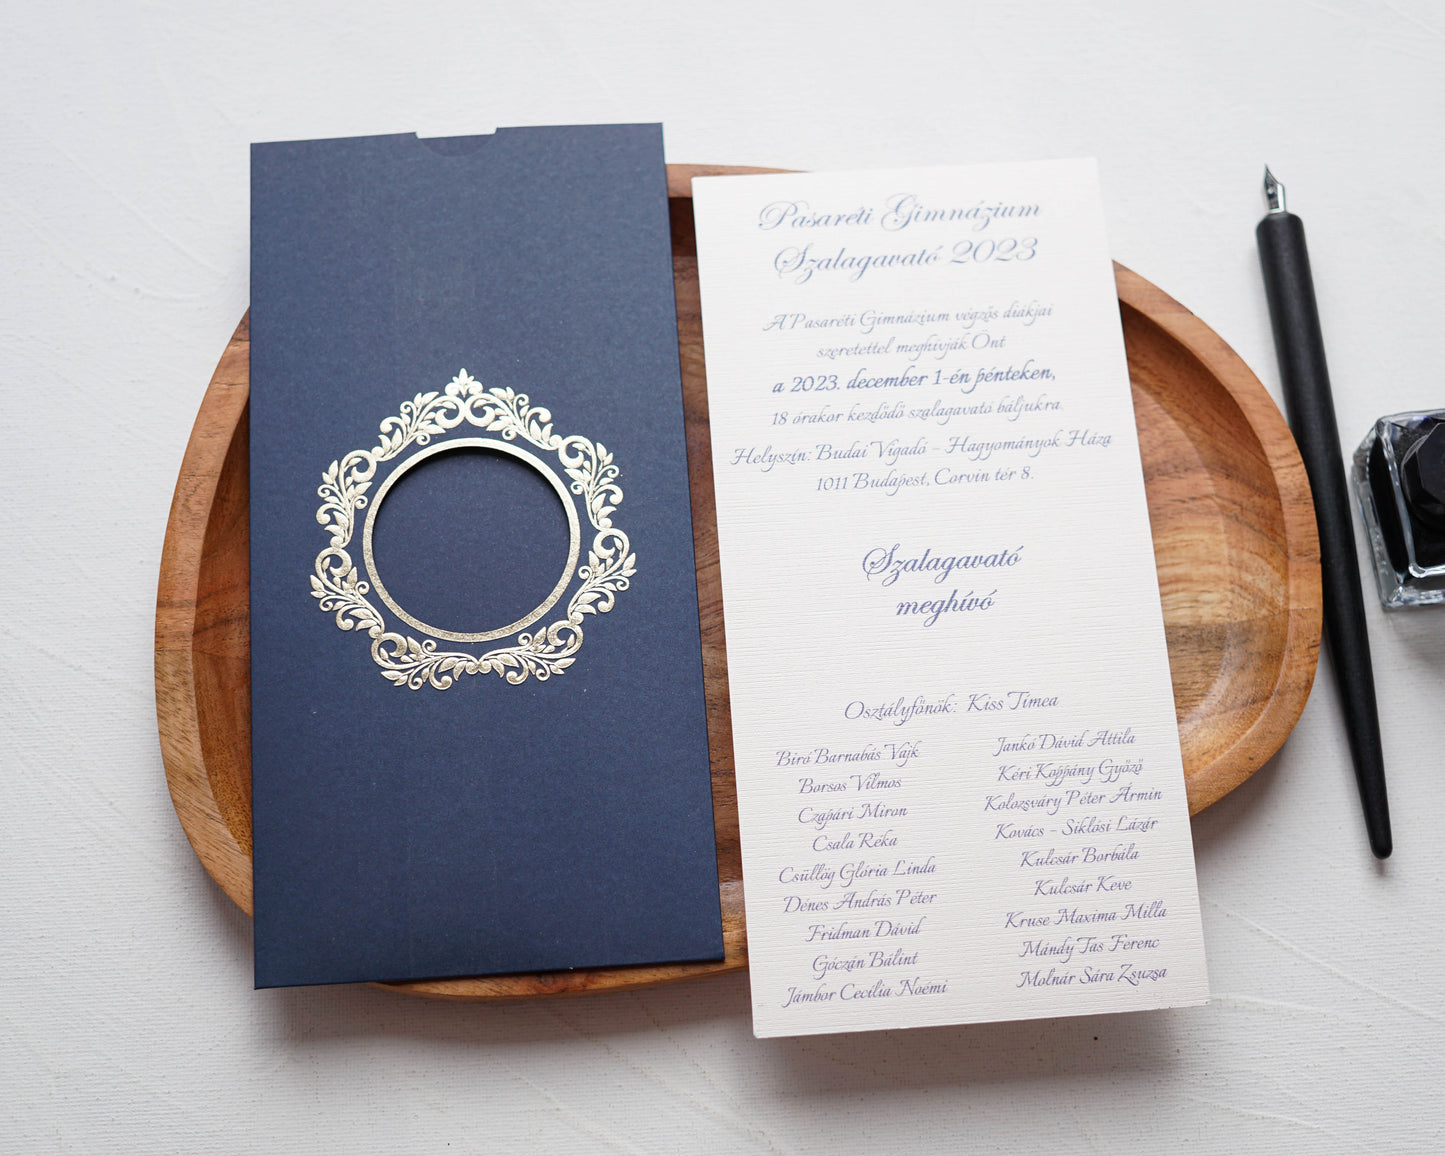 Pasaréti Gimnázium
Szalagavató 2023
A Pasaréti Gimnázium végzős diákjai
szeretettel meghívják Önt
a 2023. december 1-én pénteken,
18 órakor kezdődő szalagavató báljukra.
Helyszín: Budai Vigadó - Hagyományok Háza
1011 Budapest, Corvin tér 8.
Szalagavató
meghívó
Osztályfőnök: Kiss Tímea
Biró Barnabás Vajk
Borsos Vilmos
Czapári Miron
Csala Réka
Csüllög Glória Linda
Dénes András Péter
Fridman Dávid
Góczán Bálint
Jámbor Cecília Noémi
Jankó Dávid Attila
Kéri Koppány Győző
Kolozsváry Péter Ármin
Kovács - Siklósi Lázár
Kulcsár Borbála
Kulcsár Keve
Kruse Maxima Milla
Mándy Tas Ferenc
Molnár Sára Zsuzsa